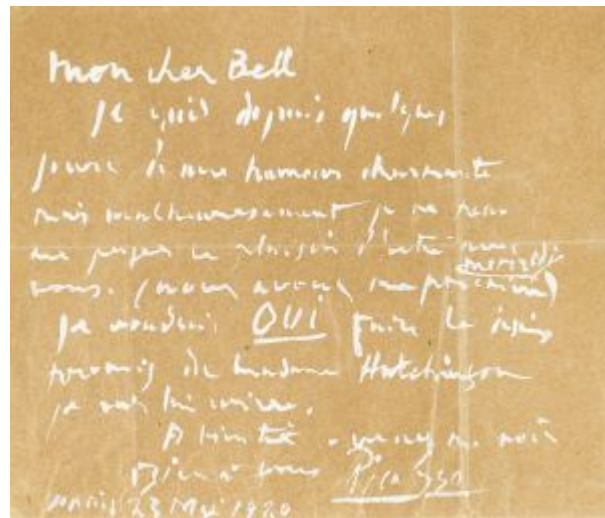 mon cher Bell
je suis depuis quelques
jours de une humeur charmante
mais malheureusement je ne peux
me payer le plaisir d'etre avec
mercredi
vous. (nous avons
je voudrai OUI faire le
promis de madame Hutchinson
je vais lui
A bientôt - venez me voir
Bien a vous Picasso
Paris 23 Mai 1920